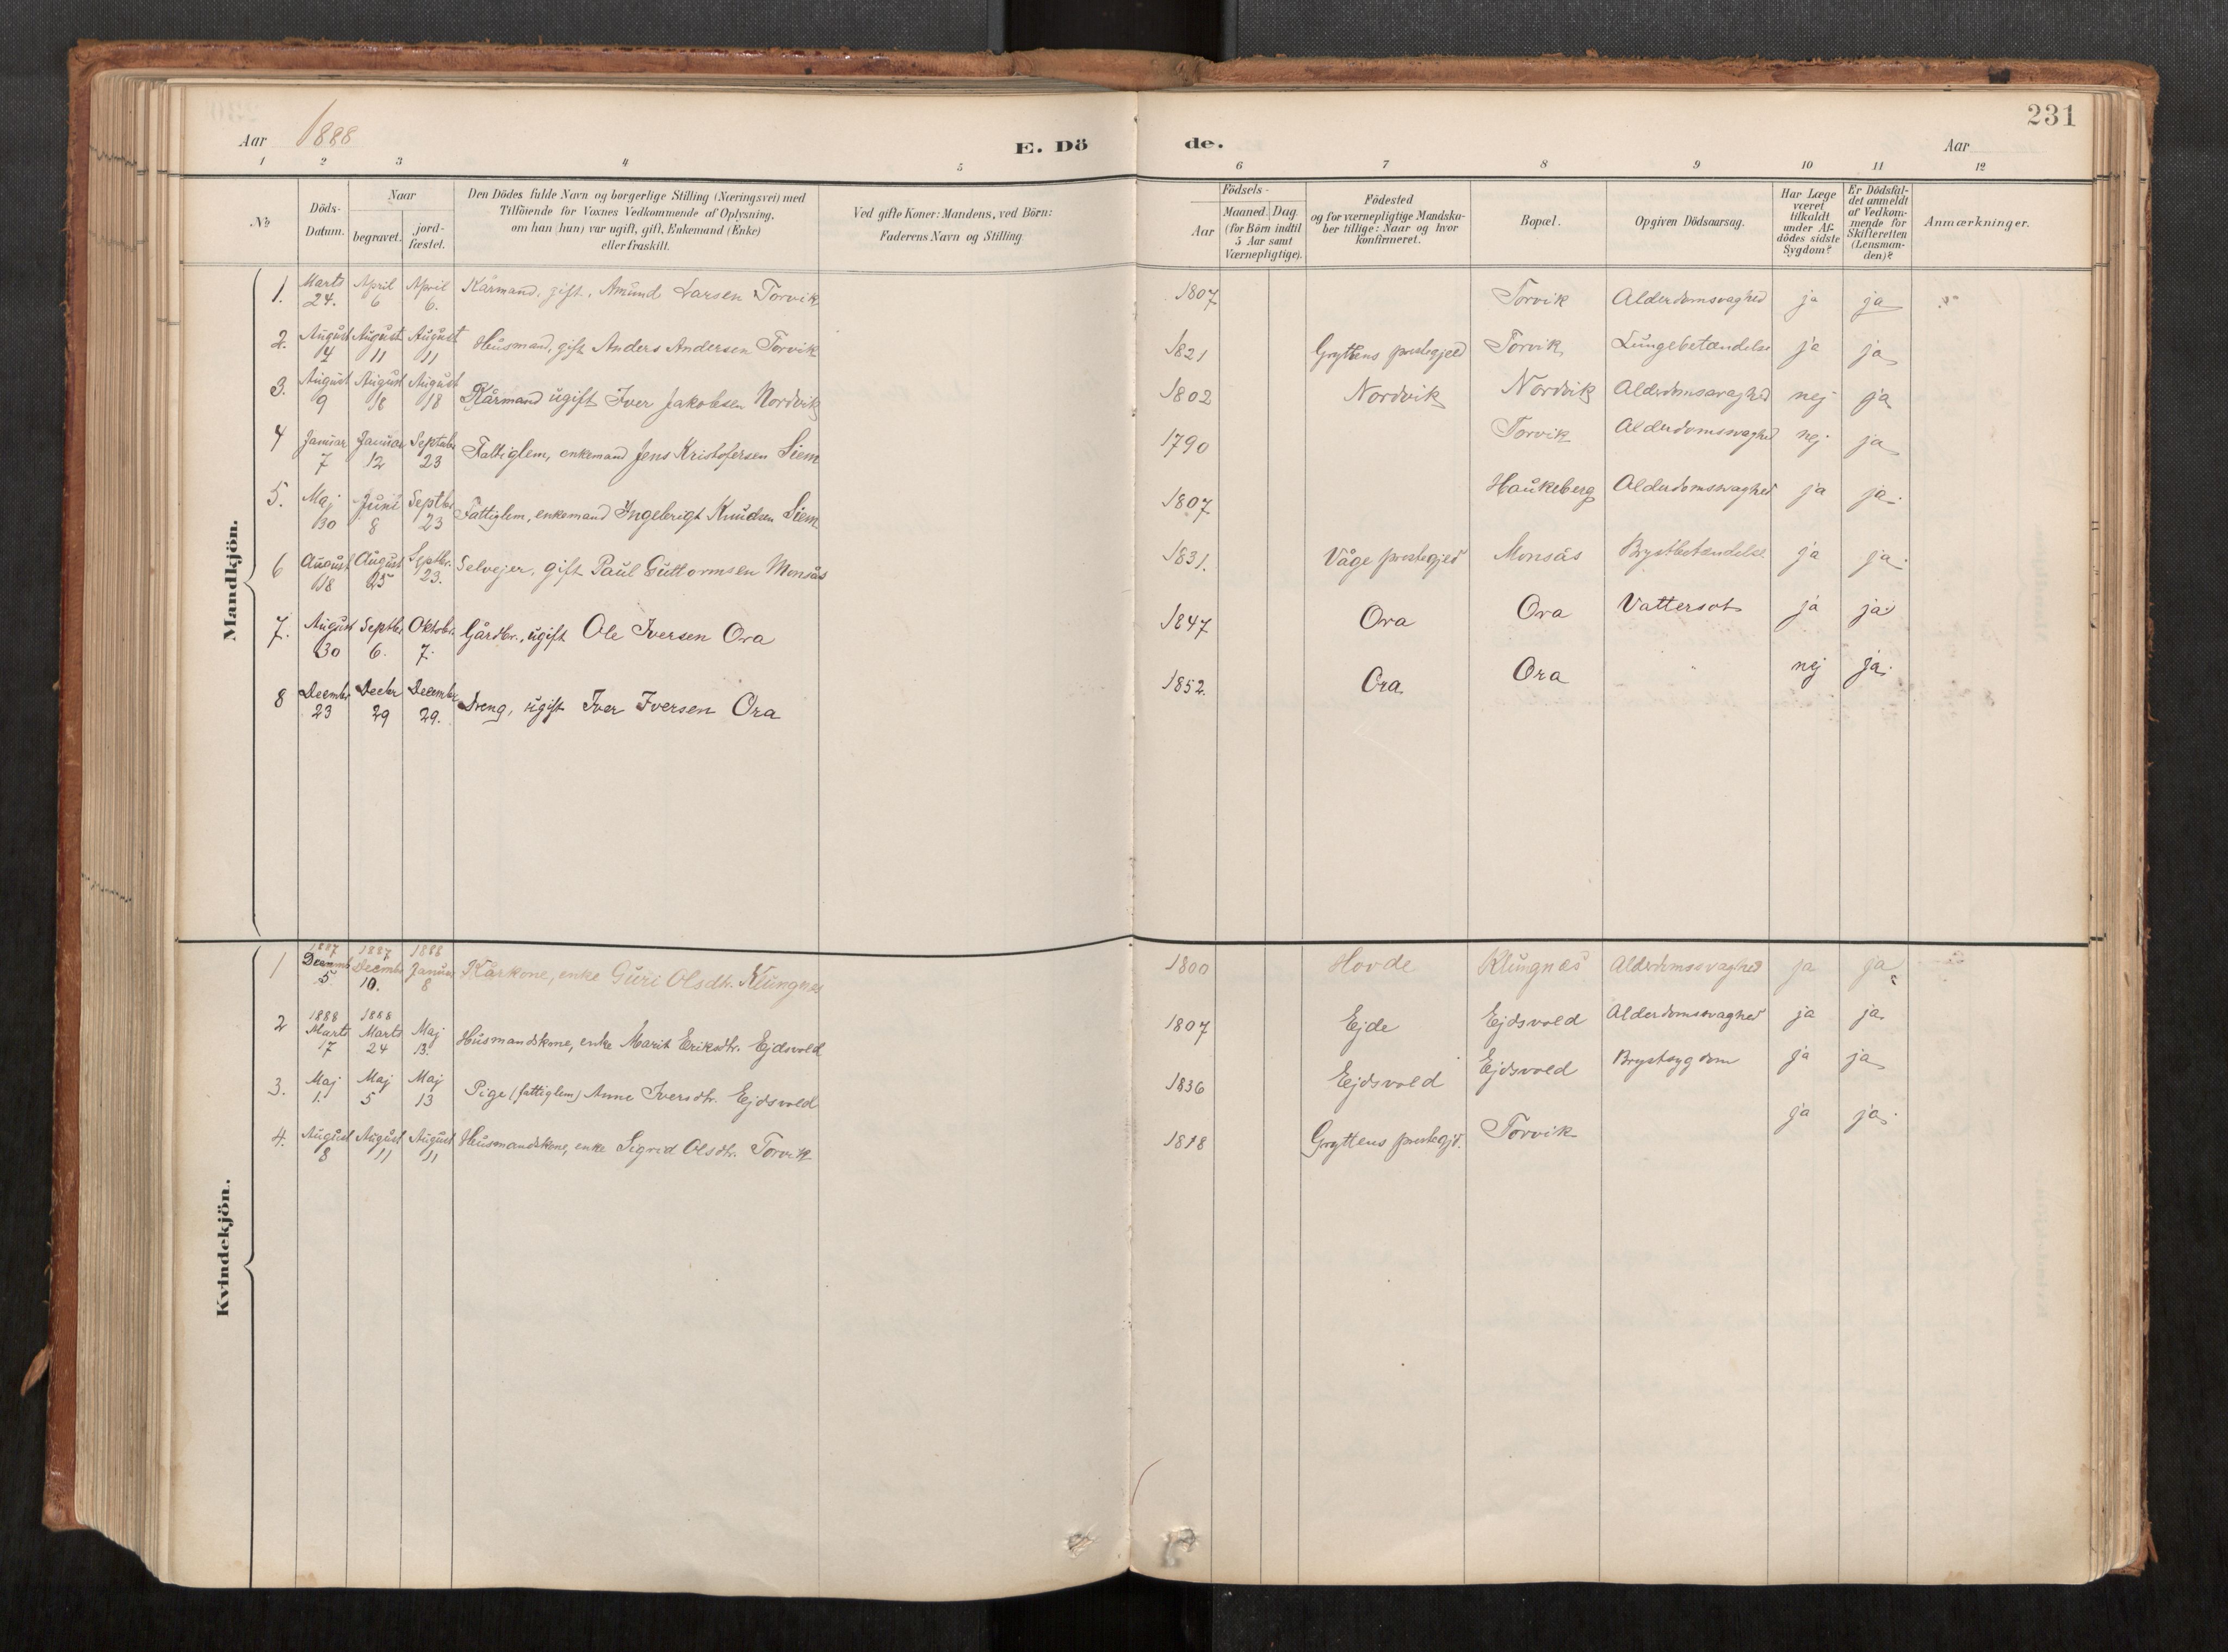 231
Aar 1888
E. Döde.
Aar
1 2 3 4 5 6 7 8 9 10 11 12
No
Döds-Datum.
Naar
begravet.
jordfæstet.
Den Dödes fulde Navn og borgerlige Stilling (Næringsvei) med
Tilföiende for Voxnes Vedkommende af Oplysning,
om han (hun) var ugift, gift, Enkemand (Enke)
eller fraskilt.
Ved gifte Koner: Mandens, ved Börn:
Faderens Navn og Stilling.
Födsels-
Aar
Maaned. Dag.
(for Börn indtil
5 Aar samt
Værnepligtige).
Födested
og for værnepligtige Mandska-
ber tillige: Naar og hvor
konfirmeret.
Bopæl.
Opgiven Dödsaarsag.
Har Læge
været
tilkaldt
under Af-
dödes sidste
Sygdom?
Er Dödsfal-
det anmeldt
af Vedkom-
mende for
Skifteretten
(Lensman-
den)?
Anmærkninger.
Mandkjön.
1. Marts 24. April 6 April 6. Kårmand, gift, Amund Larsen Torvik 1807 Torvik Alderdomsvaghed ja ja
2. August 4 August 11 August 11 Husmand, gift Anders Andersen Torvik 1821 Gryttens prestegjeld Torvik Lungebetændelse ja ja
3. August 9 August 18 August 18 Kårmand ugift Iver Jakobsen Nordvik 1802 Nordvik Nordvik Alderdomssvaghed nej ja
4 Januar 7 Januar 12 Septbr 23 Fattiglem, enkemand Jens Kristofersen Siem 1790 Torvik Alderdomssvaghed nej ja
5. Maj 30 Juni 8 Septbr 23 Fattiglem, enkemand Ingebrigt Knudsen Siem 1807 Haukeberg Alderdomssvaghed ja ja
6 August 18 August 25 Septbr. 23. Selvejer, gift Paul Guttormsen Monsås 1831. Våge prestegjed Monsås Brystbetændelse ja ja
7. August 30 Septbr 6. Oktobr. 7. Gårdbr., ugift Ole Iversen Ora 1847 Ora Ora Vattersot ja ja
8 Decembr 23 Decbr 29 Decembr 29. Dreng, ugift Iver Iversen Ora 1852. Ora Ora " nej ja.
Kvindekjön.
1 1887 Decemb 5. 1887 Decembr 10. 1888 Januar 8 Kårkone, enke Guri Olsdtr. Klungnes 1800 Hovde Klungnes Alderdomssvaghed ja ja
2 1888 Marts 17 1888 Marts 24 Maj 13. Husmandskone, enke Marit Eriksdtr. Ejdsvold 1807 Ejde Ejdsvold Alderdomssvaghed ja ja
3. Maj 1. Maj 5 Maj 13 Pige (fattiglem) Anne Iversdtr. Ejdsvold 1836 Ejdsvold Ejdsvold Brystsygdom ja ja
4. August 8 August 11 August 11 Husmandskone, enke Sigrid Olsdtr. Torvik 1818 Gryttens prestegjd. Torvik ja ja